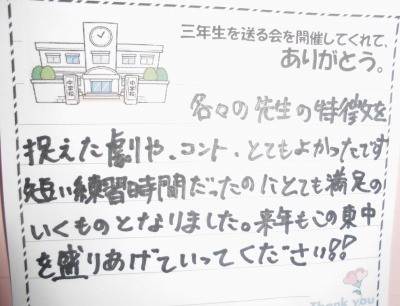 三年生を送る会を開催してくれて、
ありがとう。
中学校
中学校
各々の先生の特徴を
捉えた劇や、コント、とてもよかったです
短い練習時間だったのにとても満足の
いくものとなりました。来年もこの東中
を盛りあげていってください!!
Thank you